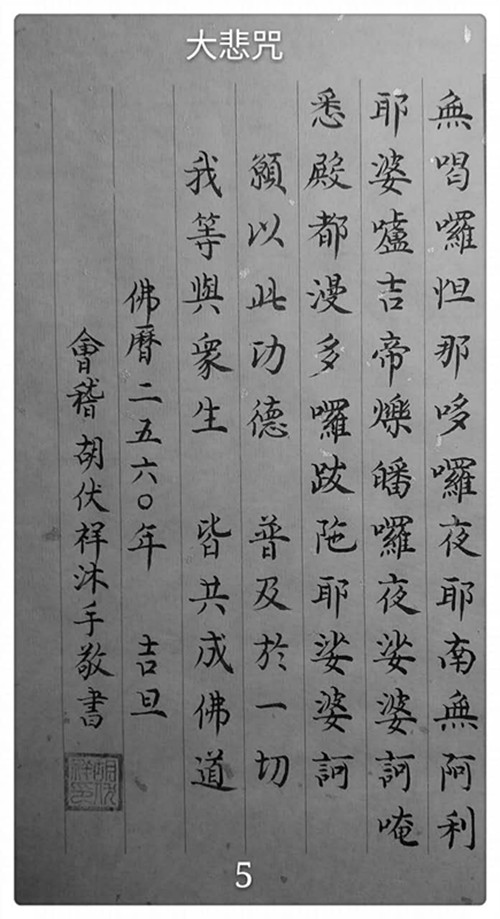 大悲咒
無喝囉怛那哆囉夜耶南無阿利
耶婆嚧吉帝爍皤囉夜娑婆訶唵
悉殿都漫多囉跋陀耶娑婆訶
願以此功德 普及於一切
我等與眾生 皆共成佛道
佛曆二五六〇年 吉旦
會稽胡伏祥沐手敬書
胡伏祥印
5